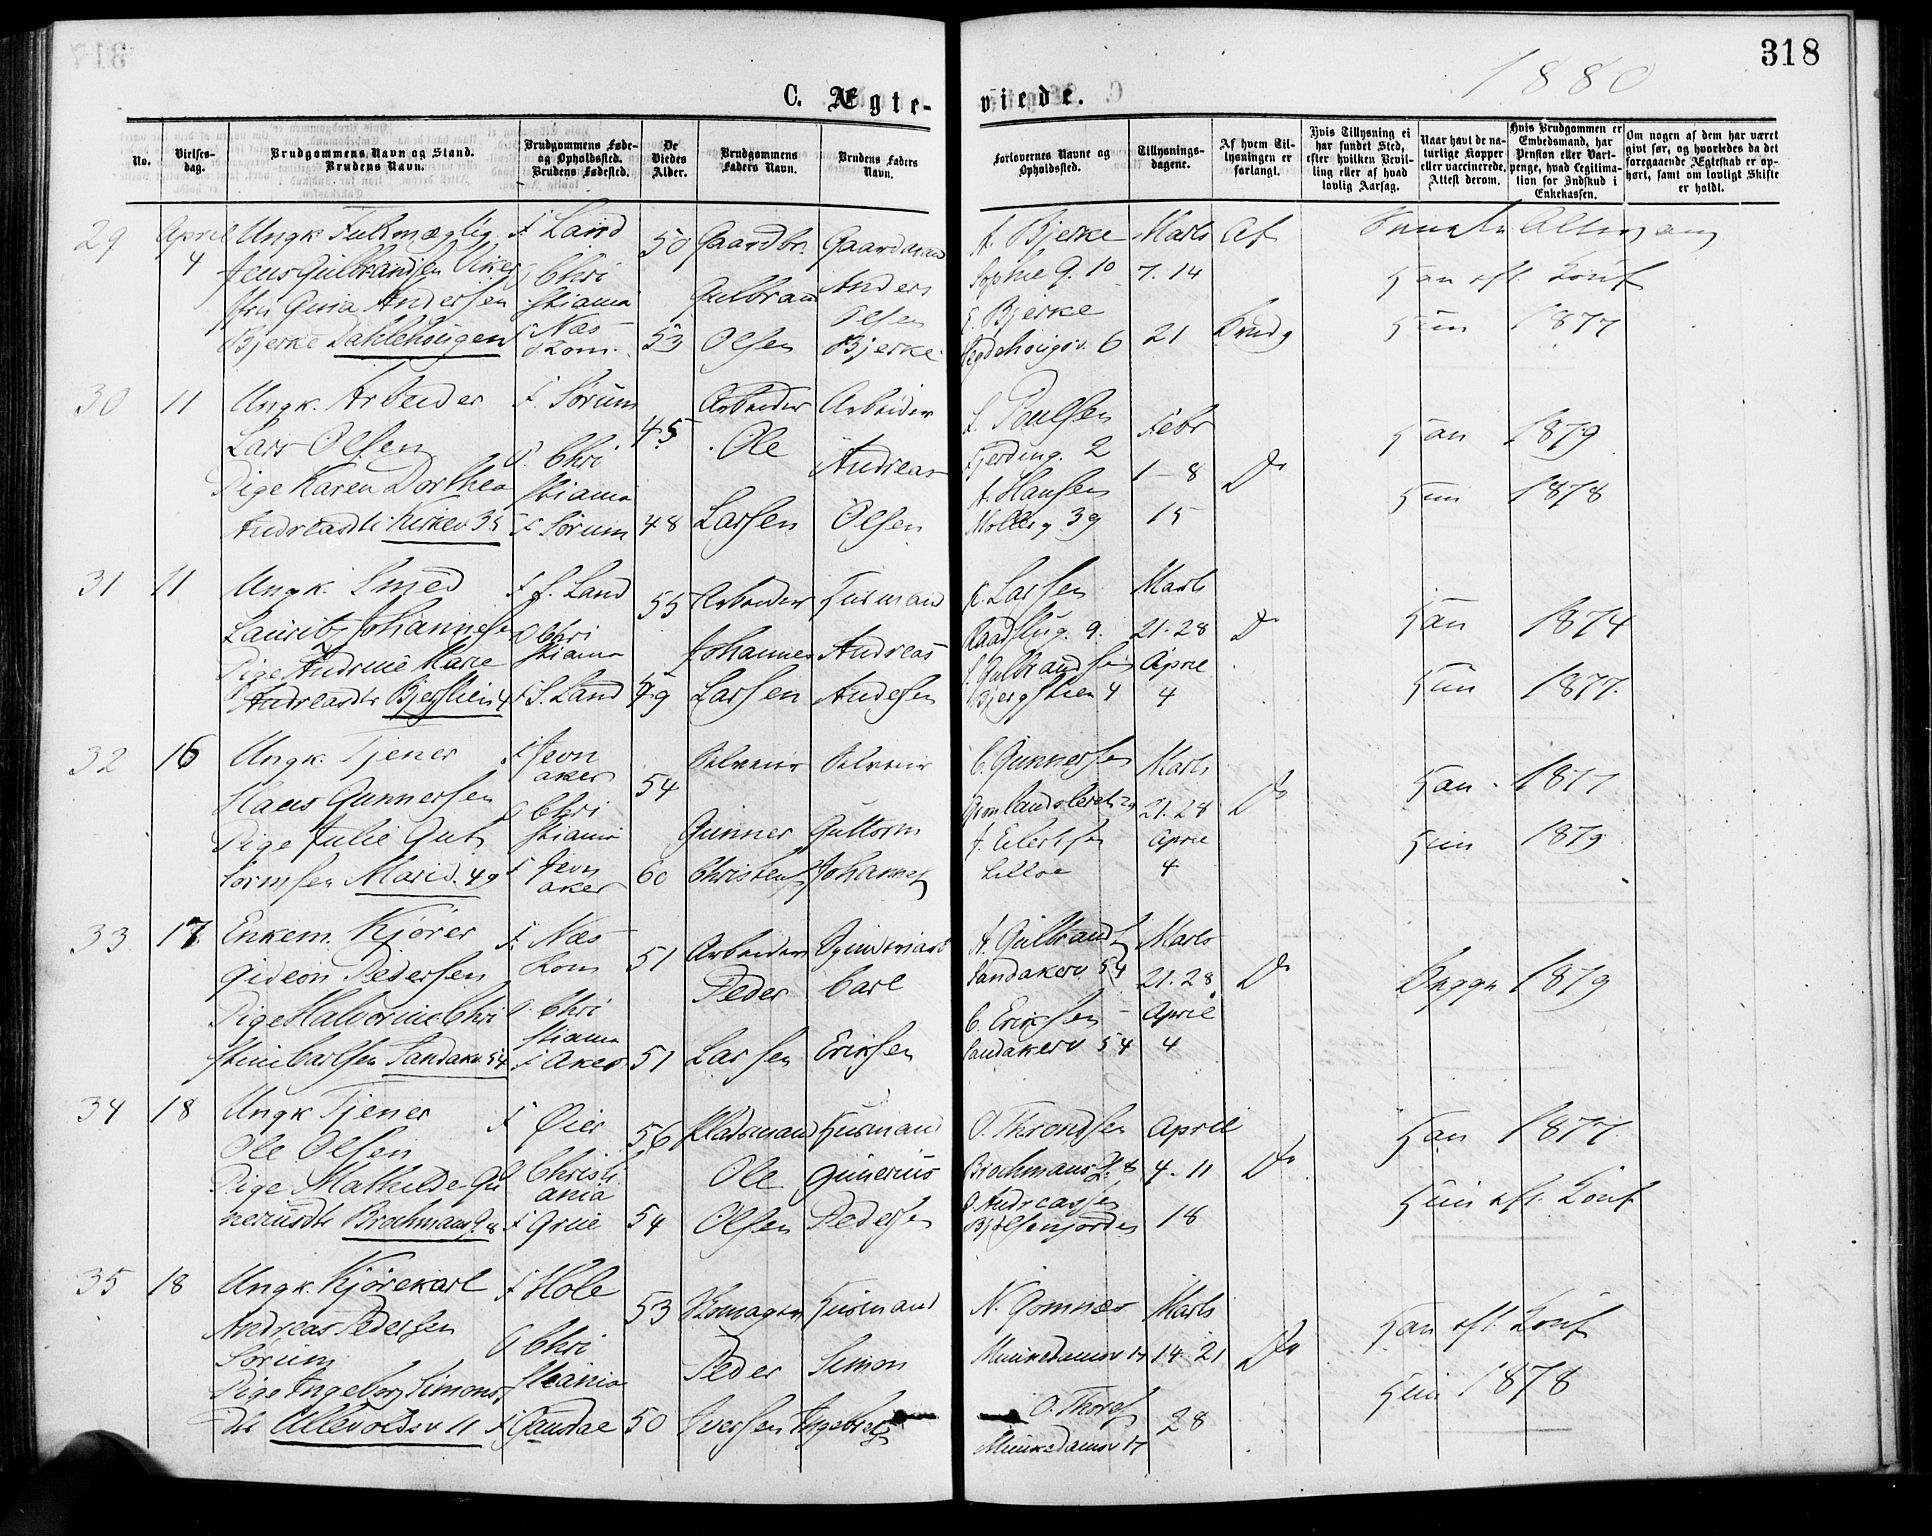 318
1880
C. Ægte-
viede.
No.
Vielses-
dag.
Brudgommens Navn og Stand.
Brudens Navn.
Brudgommens Føde-
og Opholdssted.
Brudens Fødested.
De
Viedes
Alder.
Brudgommens
Faders Navn.
Brudens Faders
Navn.
Forlovernes Navne og
Opholdssted.
Tillysnings-
dagene.
Af hvem Til-
lysningen er
forlangt.
Hvis Tillysning ei
har fundet Sted,
efter hvilken Bevil-
ling eller af hvad
lovlig Aarsag.
Naar havt de na-
turlige Kopper
eller vaccinerede.
Attest derom.
Hvis Brudgommen er
Embedsmand, har
Pension eller Vart-
penge, hvad Legitima-
tion for Indskud i
Enkekassen.
Om nogen af dem har været
gift før, og hvorledes da det
foregaaende Ægteskab er op-
hørt, samt om lovligt Skifte
er holdt.
29
April
4
Ungk. Fulmægtig
Jens Gulbrandsen
Andersen
Bjerke Dahlehougen
F. Land
O Chri
stiania
F Næs
Rom.
50
53
Gaardbr.
Gulbrand
Olsen
Gaardmand
Anders
Olsen
Bjerke
A. Bjerke
Sophie G. 10
Bjerke
6
Marts
7. 14
21
Af
Brudg
Han eft. Konf
Hun 1877
30
11
Ungk. Arbeider
Lars Olsen
Pige Karen Dorthea
Andreasdt. Kirkev 35
F. Sørum
O. Chri
stiania
F Sørum
45
48
Arbeider
Ole
Larsen
Arbeider
Andreas
Olsen
Poulsen
Fjerding. 2
A. Hansen
Møllerg 39
Febr
1-8
15
Do
Han 1879
Hun 1878
31
11
Ungk. Smed
Lauritz Johannesen
Pige Andrine Marie
Andreasdtr Bjergstien 4
F S. Land
O Chri
stiania
F S. Land
55
49
Arbeider
Johannes
Larsen
Husmand
Andreas
Andersen
Larsen
Raadhusg. 9.
Gulbrandsen
Bjergstien 4
Marts
21. 28
April
4
Do
Han 1874
Hun 1877.
32
16
Ungk. Tjener
Hans Gunnersen
Pige Julie Gut
tormsen Marid. 49
F Jevn
aker
O Chri
stiania
F Jevn
aker
54
60
Selveier
Gunner
Christens
Selveier
Guttorm
Johannes
C. Gunnersen
Grønlandsleret 29
J. Eilertsen
Lilloe
Marts
21. 28
April
4
Do
Han 1877
Hun 1879
33
17.
Enkem. Kjører
Gideon Pedersen
Pige Halvorine Chri
stine Carlsen Sandakerv 54
F. Næs
Rom
O Chri
stiania
F Aker
51
51
Arbeider
Peder
Larsen
Carl
Eriksen
A. Gulbrands
Sandakerv. 54
C. Eriksen
Sandakerv 54
Marts
21. 28
April
4
Do
Begge 1879
34
18
Ungk Tjener
Ole Olsen
Pige Mathilde Gu
neriusdtr Brochmansg. 8
F Øier
O Christi
ania
F Grue
56
54
Pladsmand
Ole
Olsen
Husmand
Gunerius
Pedersen
O. Throndsen
Brochmansg. 8
Andreassen
April
4-11
18
Do
Han 1877
Hun eft. Konf
35
18
Ungk. Kjørekarl
Andreas Pedersen
Sørum
Pige Ingeborg Simons
dtr Ullevoldsv 11
F Hole
O Chri
stiania
F Gausdal
53
50
Skomager
Peder
Iversen
Husmand
Simon
Ingebrets
N. Gomnæs
Munkedamsv 17
O. Thores
Munkedamsv 17
Marts
14. 21
28
Do
Han eft. Konf
Hun 1878